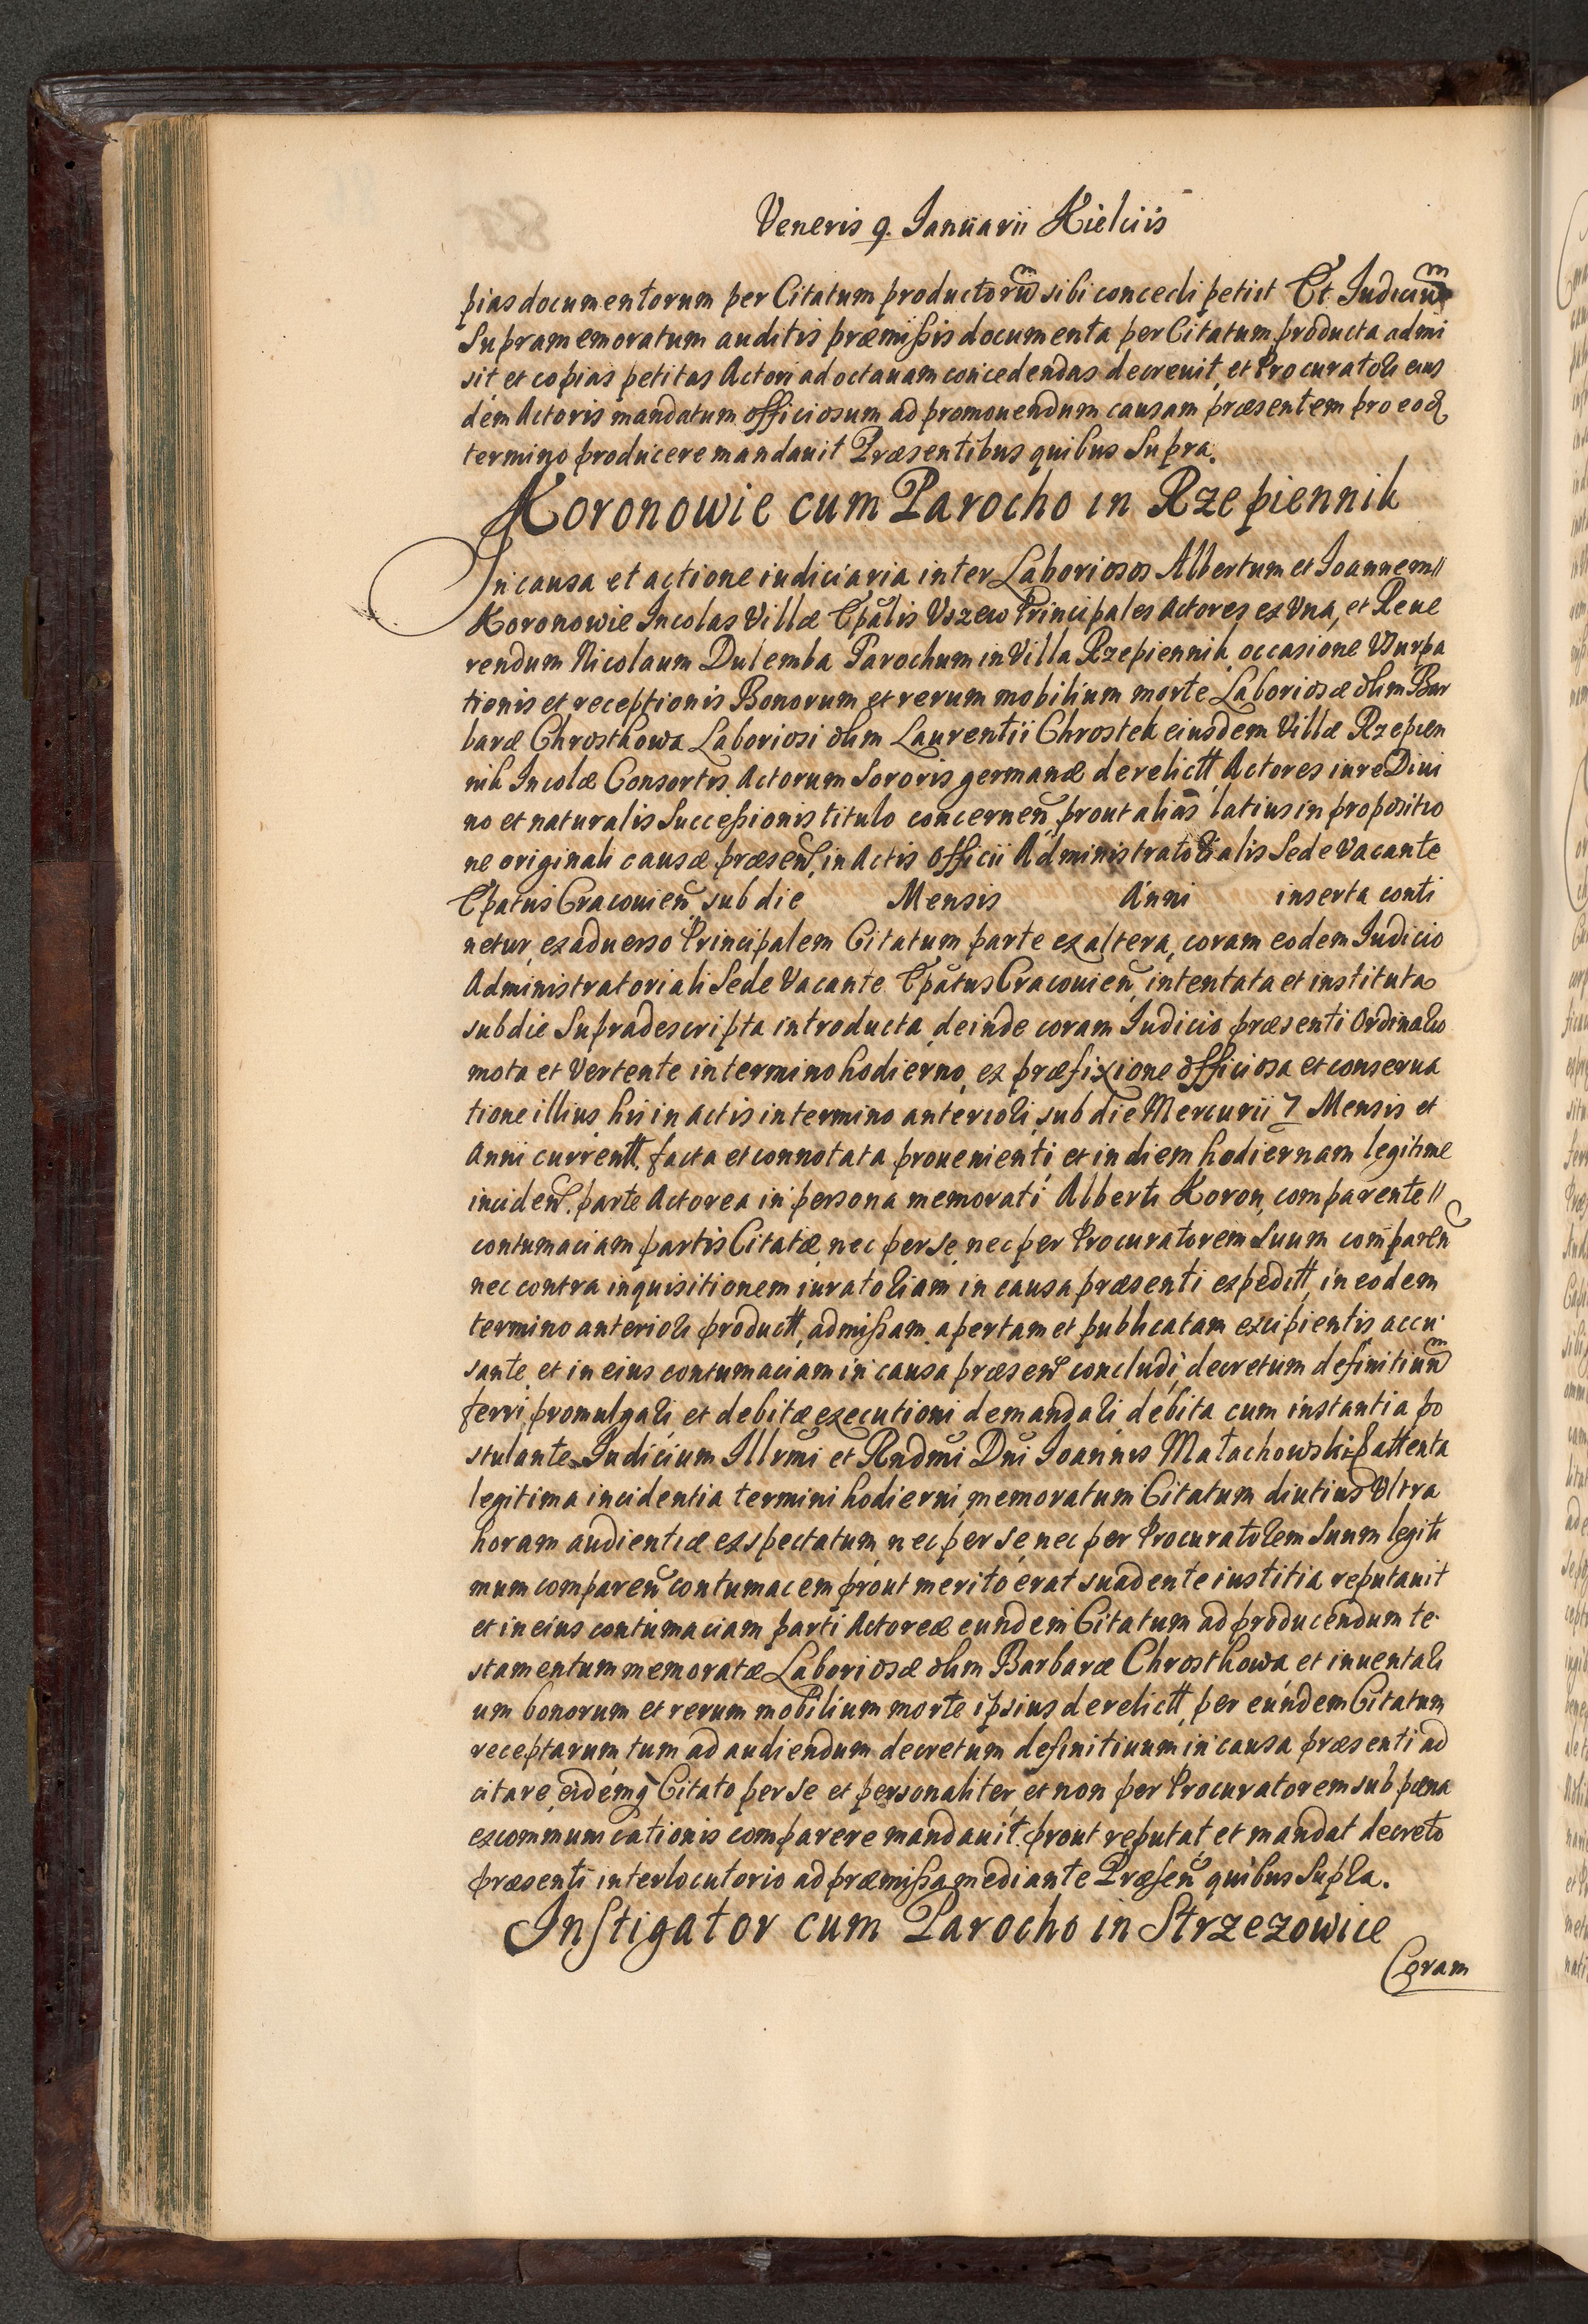 Veneris 9. Januarii Kielciis
pias documentorum per Citatum productorum sibi concedi petiit Et Judicium
Supramemoratum auditis præmissis documenta per Citatum producta admi
sit et copias petitas Actori ad octauam concedendas decreuit, et Procuratori eius
dem Actoris mandatum officiosum ad promouendum causam præsentem pro eod
termino producere mandauit Præsentibus quibus Supra.
Koronowie cum Parocho in Rzepiennik
In causa et actione iudiciaria inter Laboriosos Albertum et Joannem //
Koronowie Incolas Villæ Epalis Uszew Principales Actores ex Vna, et Reue
rendum Nicolaum Dulemba Parochum in Villa Rzepiennik occasione Vsurpa
tionis et receptionis Bonorum et rerum mobilium morte Laboriosæ olim Bar
baræ Chrostkowa Laboriosi olim Laurentii Chrostek eiusdem Villæ Rzepien
nik Incolæ Consortis Actorum Sororis germanæ derelictt Actores iure Diui
no et naturalis Successionis titulo concernen prout alias latius in propositio
ne originali causæ præsen, in Actis Officii Administratorialis Sede Vacante
Epatus Cracouien sub die Mensis Anni inserta conti
netur, ex aduerso Principalem Citatum parte ex altera, coram eodem Judicio
Administratoriali Sede Vacante Epatus Cracouien intentata et instituta
sub die Supradescripta introducta, deinde coram Judicio præsenti Ordinario
mota et Vertente in termino hodierno, ex præfixione officiosa et conserua
tione illius his in actis in termino anteriori, sub die Mercurii 7 Mensis et
Anni currentt, facta et connotata prouenienti, et in diem hodiernam legitime
inciden. parte Actorea in persona memorati Alberti Koron, comparente //
contumaciam partis Citatæ, nec per se, nec per Procuratorem Suum comparen
nec contra inquisitionem iuratoriam in causa præsenti expeditt, in eodem
termino anteriori productt, admissam apertam et publicatam excipientis accu
sante, et in eius contumaciam in causa præsen concludi, decretum definitium
ferri, promulgari, et debitæ executioni demandari debita cum instantia po
stulante Judicium Illrmi et Rndmi Dni Joannis Małachowski E attenta
legitima incidentia termini hodierni, memoratum Citatum diutius Vltra
horam audientiæ exspectatum, nec per se nec per Procuratorem Suum legiti
mum comparen contumacem prout merito erat suadente iustitia reputauit
et in eius contumaciam parti Actoreæ eundem Citatum ad producendum te
stamentum memoratæ Laboriosæ olim Barbaræ Chrostkowa et inuentari
um bonorum et rerum mobilium morte ipsius derelictt per eundem Citatum
receptarum tum ad audiendum decretum definitiuum in causa præsenti ad
citare, eidemq Citato per se et personaliter, et non per Procuratorem sub pæna
excommunicationis comparere mandauit. prout reputat et mandat decreto
præsenti interlocutorio ad præmissa mediante Præsen quibus Supra.
Instigator cum Parocho in Strzezowice
Coram